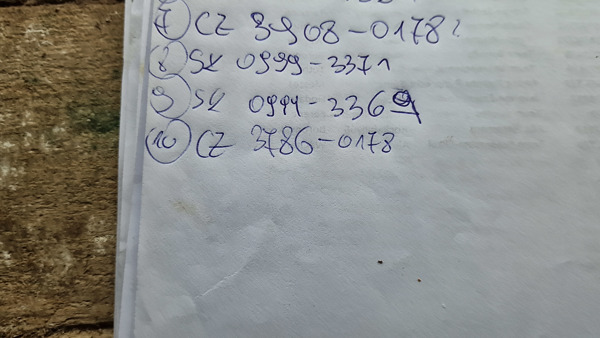 7 CZ 3908-0178?
8 SK 0999-3371
9 SK 0994-3369
10 CZ 3786-0178